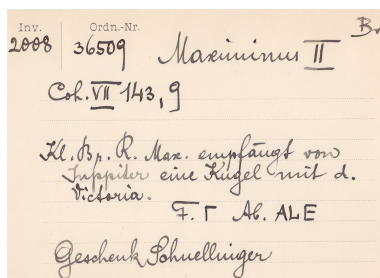 Inv. Ordn.-Nr. Br
2008 36509 Maximinus II
Coh. VII 143, 9
Kl. Br. R. Max. empfängt von
Juppiter eine Kugel mit d.
Victoria.
F. Γ Ab. ALE
Geschenk Schnellinger